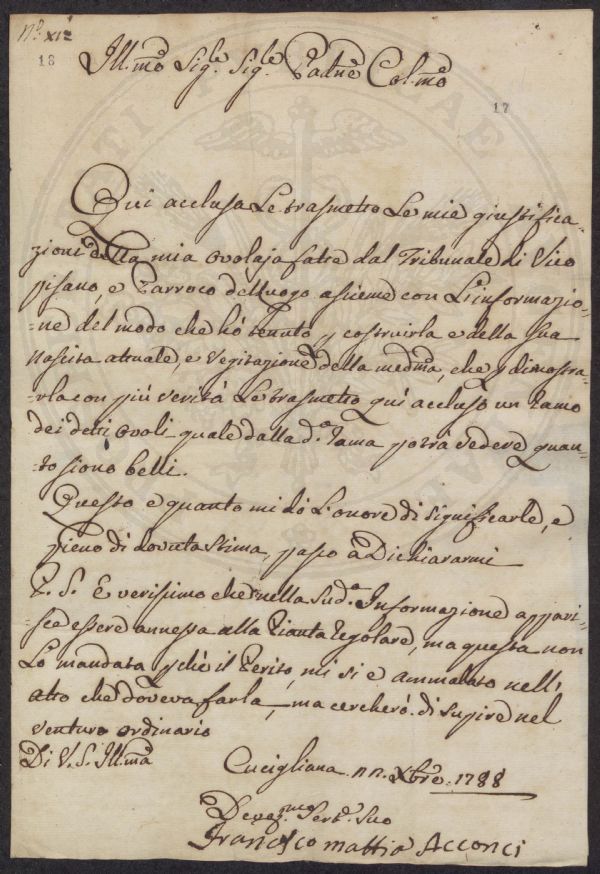 N.º XII
18
Ill.mo Sig.re Sig.re Padrone Col.mo
17
Qui acclusa Le trasmetto Le mie giustifica=
zioni della mia ovolaja fatte dal Tribunale di Vico
pisano, e Parroco del luogo assieme con L'informazio=
=ne del modo che hò tenuto p costruirla e della sua
nascita attuale, e vegitazione della medma, che p dimostra=
=rla con più verità Le trasmetto quì accluso un Ramo
dei detti ovoli quale dalla d.a Rama potrà vedere quan=
=to siono belli.
Questo e quanto mi dò L'onore di significarle, e
pieno di dovuta stima, passo à Dichiararmi
P. S. E verissimo che nella Sud.a Informazione appari=
=sce essere annessa alla Pianta Regolare, ma questa non
Lo mandata pchè il Perito, mi si e ammalato nell'
atto che doveva farla, ma cercherò di supire nel
venturo ordinario
Di V. S. Ill.ma
Cucigliana 22. Xbre. 1788
Dev.mo Serv.e Suo
Francisco Mattia Acconci